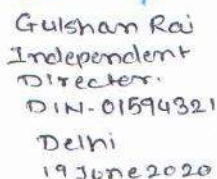 Gulshan Rai
Independent
Director.
DIN-01594321
Delhi
19 June 2020